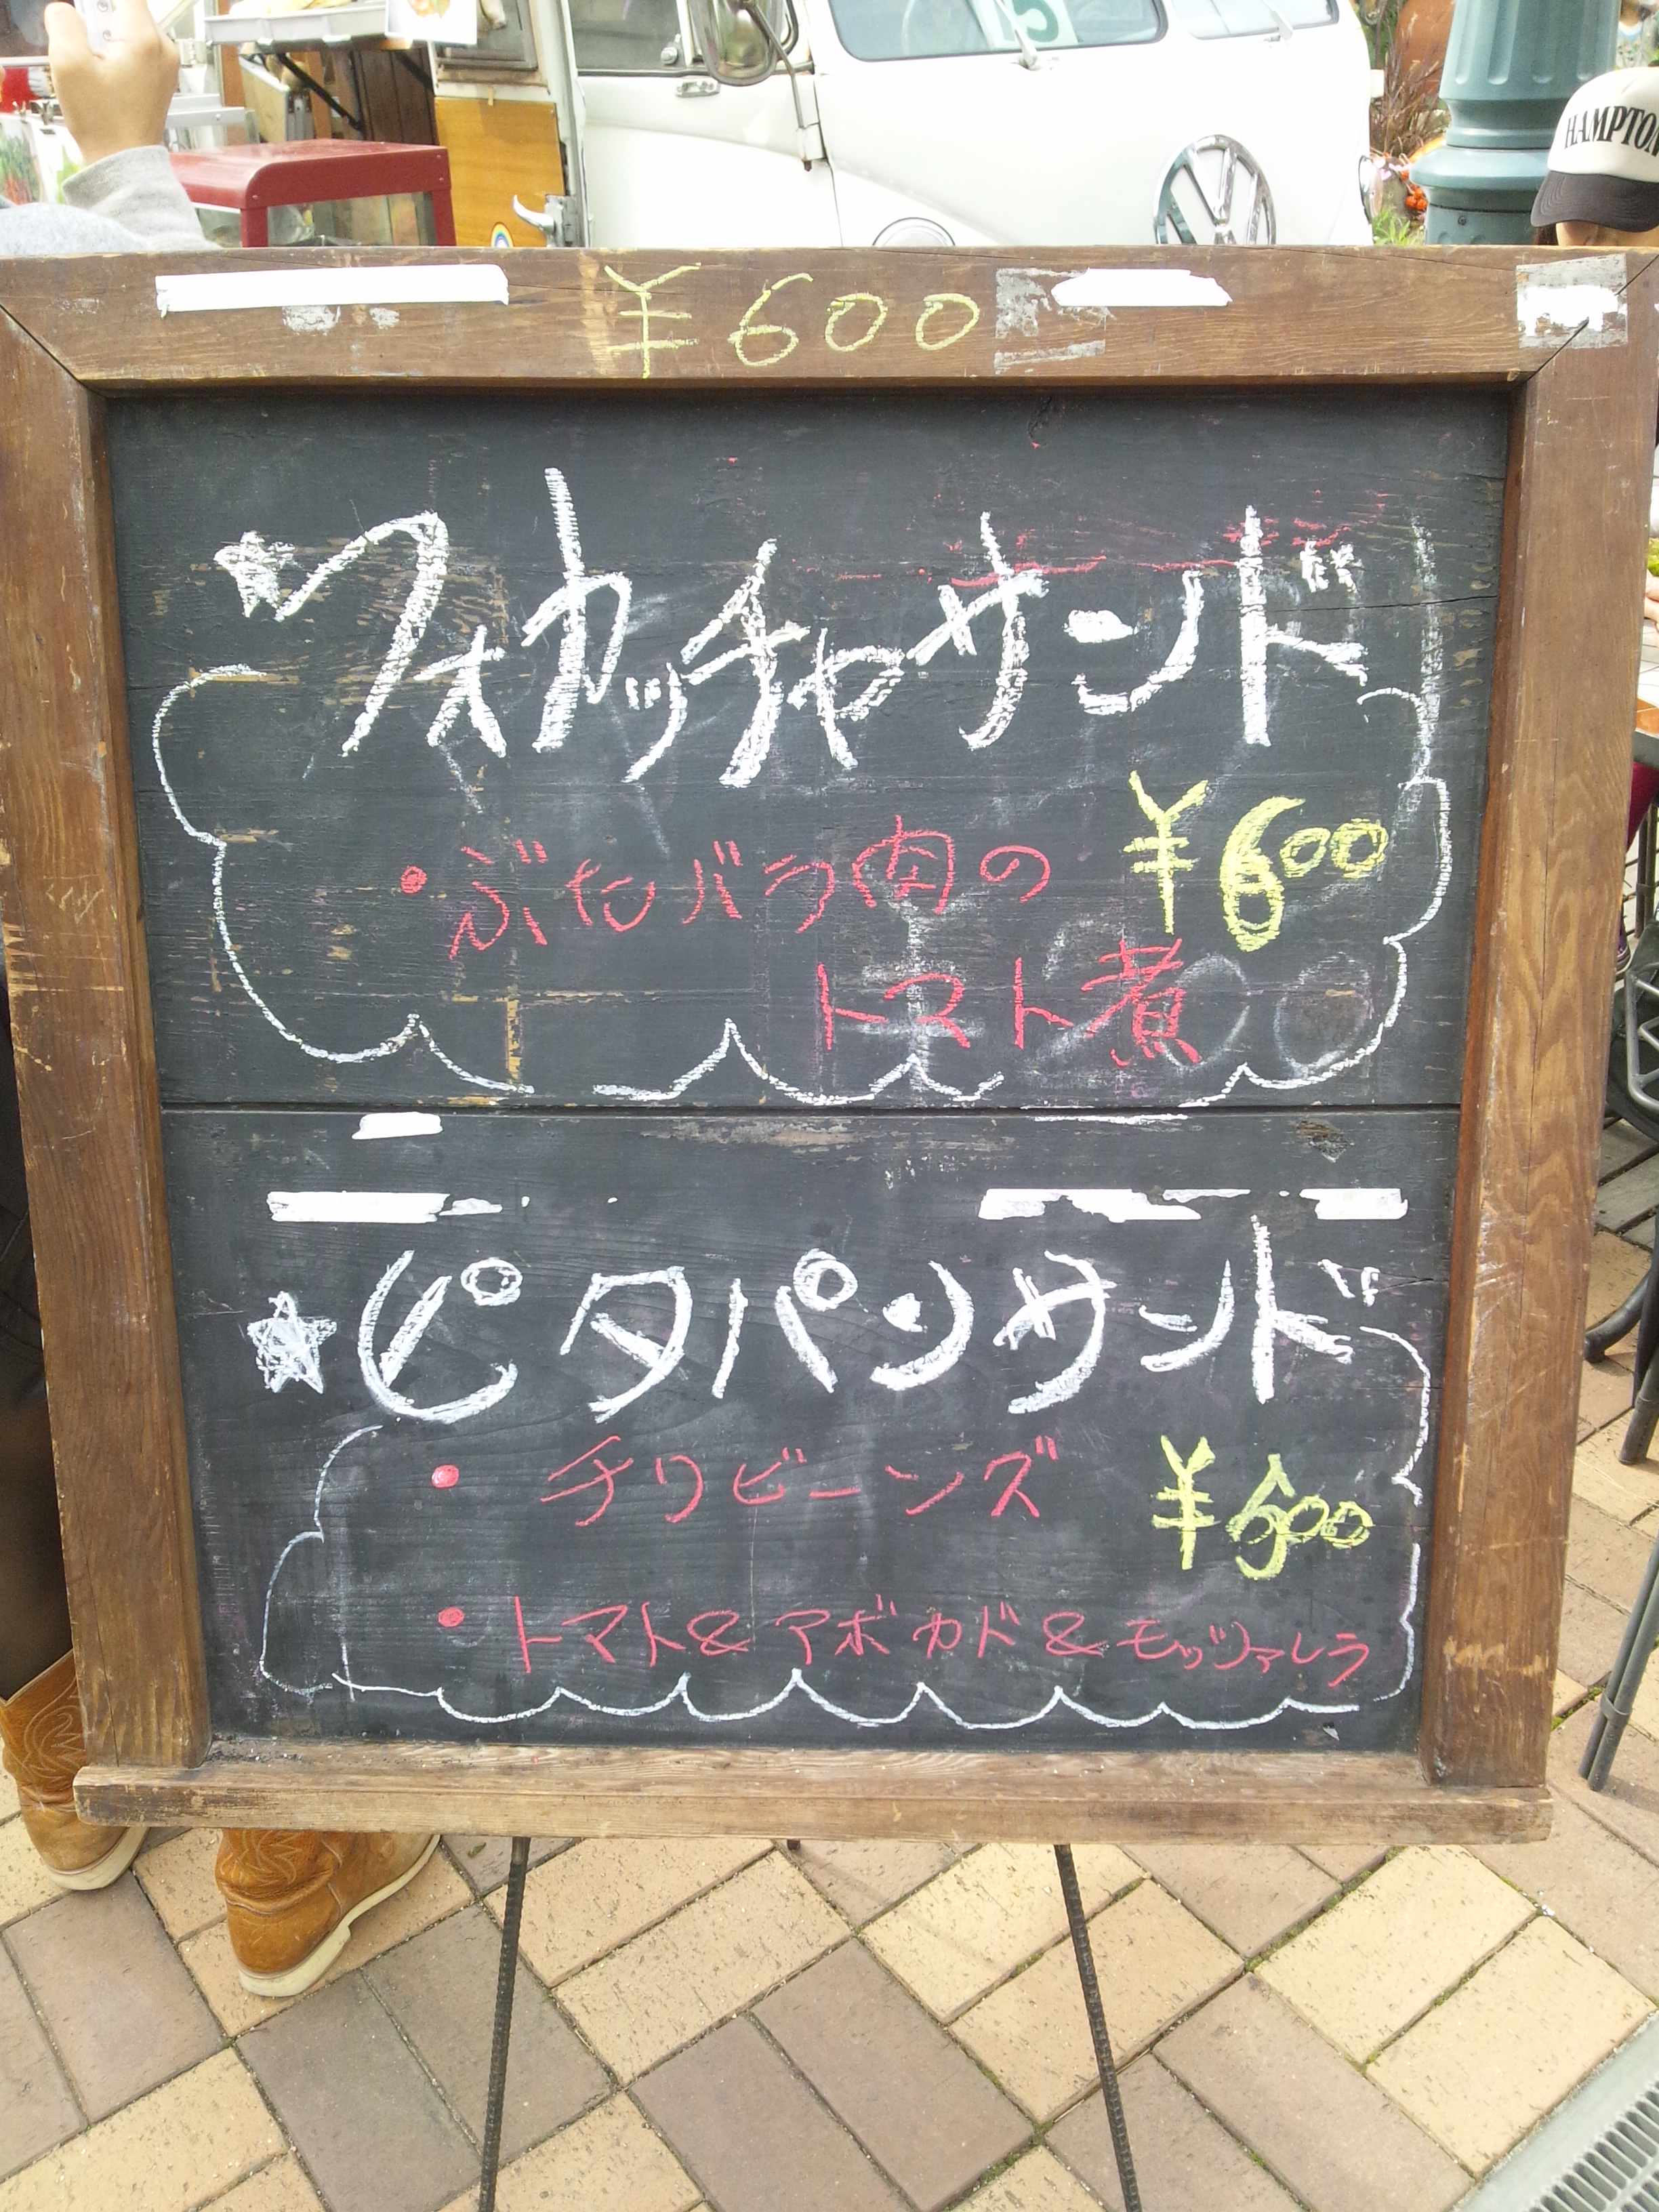 HAMPTON
¥600
★フォカッチャサンド
・ぶたバラ肉の ¥600
トマト煮
★ピタパンサンド
・チリビーンズ ¥600
・トマト&アボカド&モッツァレラ